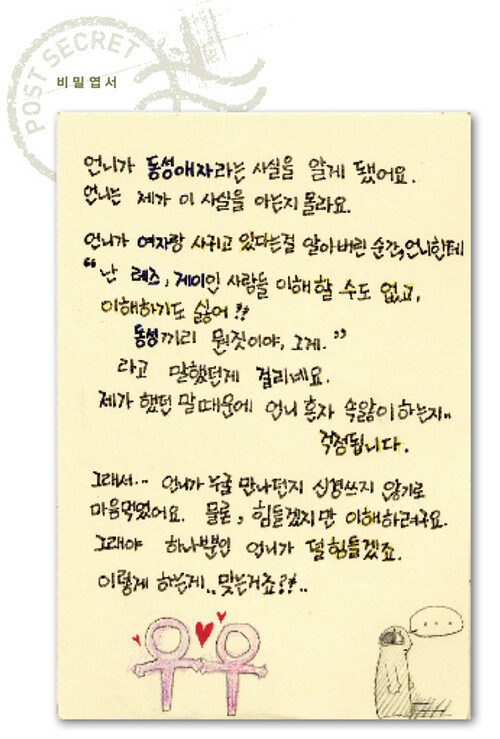 POST SECRET
비밀엽서
언니가 동성애자라는 사실을 알게 됐어요.
언니는 제가 이 사실을 아는지 몰라요.
언니가 여자랑 사귀고 있다는걸 알아버린 순간, 언니한테
“난 레즈, 게이인 사람들 이해 할 수도 없고,
이해하기도 싫어!?
동성끼리 뭔짓이야, 그게.”
라고 말했던게 걸리네요.
제가 했던 말때문에 언니 혼자 속앓이 하는지..
걱정됩니다.
그래서... 언니가 누굴 만나던지 신경쓰지 않기로
마음먹었어요. 물론, 힘들겠지만 이해하려구요.
그래야 하나뿐인 언니가 덜 힘들겠죠.
이렇게 하는게.. 맞는거죠?!..
...